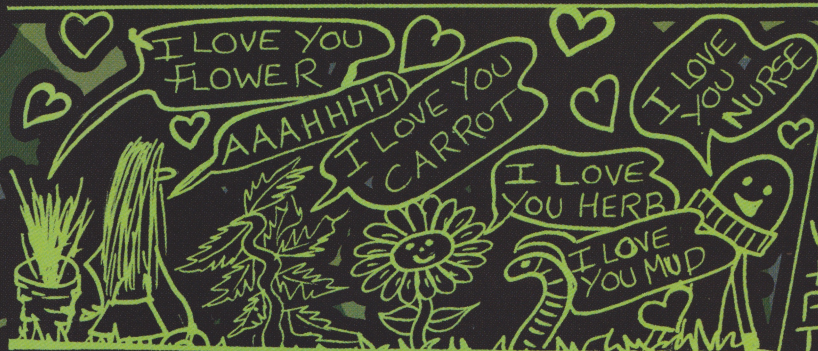 I LOVE YOU
FLOWER
AAAHHHH
I LOVE YOU
CARROT
I LOVE
YOU HERB
I LOVE
YOU MUD
I LOVE
YOU NURSE